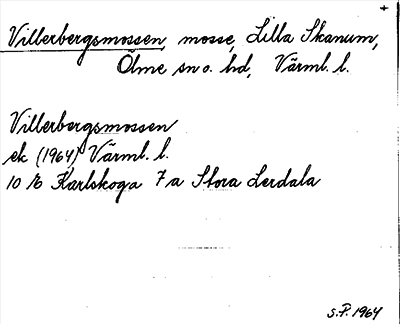 Villerbergsmossen, mosse, Lilla Skanum,
Ölme sn o. hd, Värml. l.
Villerbergsmossen
ek (1964) Värml. l.
10 E Karlskoga 7a Stora Lerdala
S.P. 1964